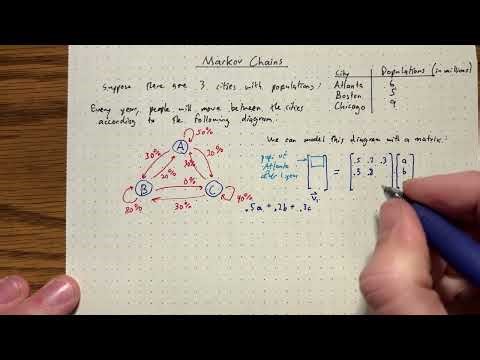 Markov Chains
Suppose there are 3 cities with populations:
City Populations (in millions)
Atlanta 6
Boston 5
Chicago 9
Every year, people will move between the cities
according to the following diagram.
50%
A
30%
20%
30%
20%
B
0%
C
30%
80%
40%
We can model this diagram with a matrix.
pop. of
Atlanta
after 1 year
V₁
=
.5 .2 .3 a
.3 .8 b
.5a + .2b + .3c